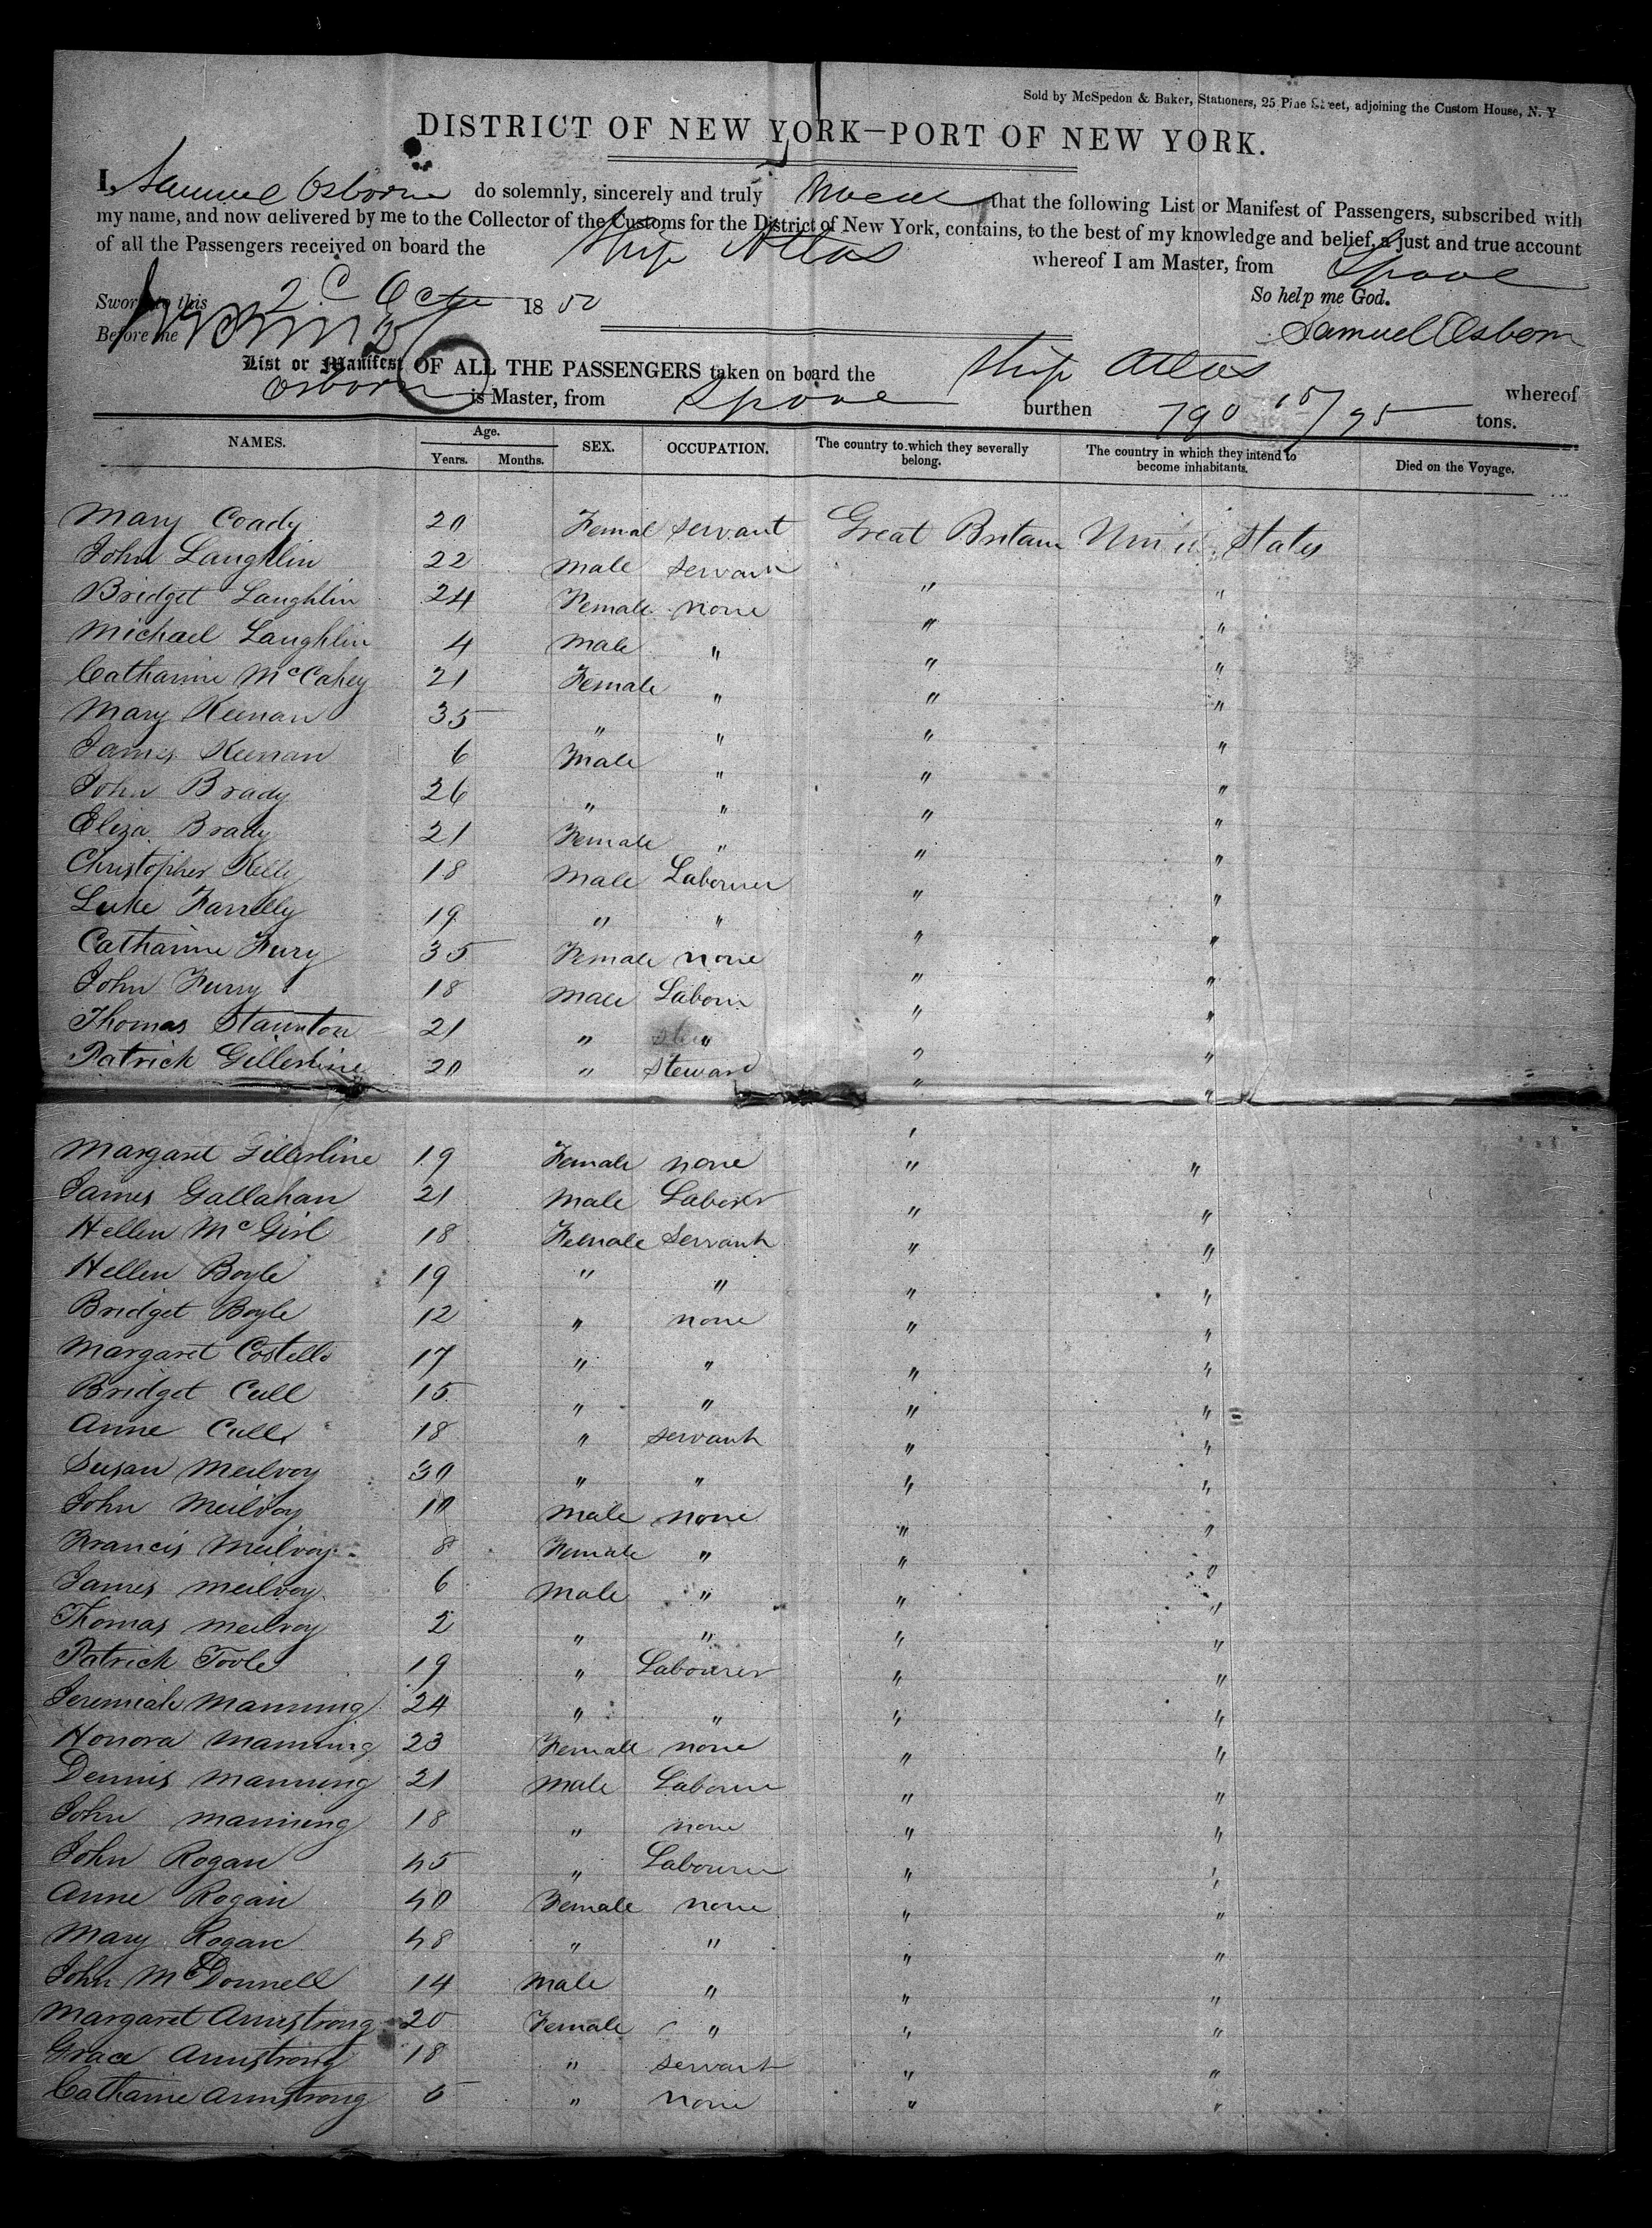 Sold by McSpedon & Baker, Stationers, 25 Pine Street, adjoining the Custom House, N. Y
DISTRICT OF NEW YORK—PORT OF NEW YORK.
I, Samuel Osborn do solemnly, sincerely and truly swear that the following List or Manifest of Passengers, subscribed with
my name, and now delivered by me to the Collector of the Customs for the District of New York, contains, to the best of my knowledge and belief, a just and true account
of all the Passengers received on board the Ship Atlas whereof I am Master, from Lpool
Sworn to this 2 Octr 1850 So help me God.
Before me Samuel Osborn
List or Manifest OF ALL THE PASSENGERS taken on board the Ship Atlas whereof
Osborn is Master, from Lpool burthen 790 15/95 tons.
NAMES. Age. Years. Months. SEX. OCCUPATION. The country to which they severally belong. The country in which they intend to become inhabitants. Died on the Voyage.
Mary Coady 20 Femal servant Great Britain United States
John Laughlin 22 Male servant " "
Bridget Laughlin 24 Female none " "
Michael Laughlin 4 Male " " "
Catharine McCahey 21 Female " " "
Mary Keenan 35 " " " "
James Keenan 6 Male " " "
John Brady 26 " " " "
Eliza Brady 21 Female " " "
Christopher Kelly 18 Male Labourer " "
Luke Farrelly 19 " " " "
Catharine Fury 35 Female none " "
John Furry 18 Male Labour " "
Thomas Staunton 21 " " " "
Patrick Gillerline 20 " Steward " "
Margaret Gillerline 19 Female none " "
James Gallahan 21 Male Laborer " "
Hellen McGirl 18 Female Servant " "
Hellen Boyle 19 " " " "
Bridget Boyle 12 " none " "
Margaret Costello 17 " " " "
Bridget Cull 15 " " " "
Anne Cull 18 " servant " "
Susan Meilvoy 30 " " " "
John Meilvoy 10 Male none " "
Francis Meilvoy 8 Female " " "
James Meilvoy 6 Male " " "
Thomas Meilvoy 2 " " " "
Patrick Toole 19 " Labourer " "
Jeremiah Manning 24 " " " "
Honora Manning 23 Female none " "
Dennis Manning 21 Male Labourer " "
John Manning 18 " none " "
John Rogan 45 " Labourer " "
Anne Rogan 40 Female none " "
Mary Rogan 48 " " " "
John McDonnell 14 Male " " "
Margaret Armstrong 20 Female " " "
Grace Armstrong 18 " servant " "
Catharine Armstrong 5 " none " "